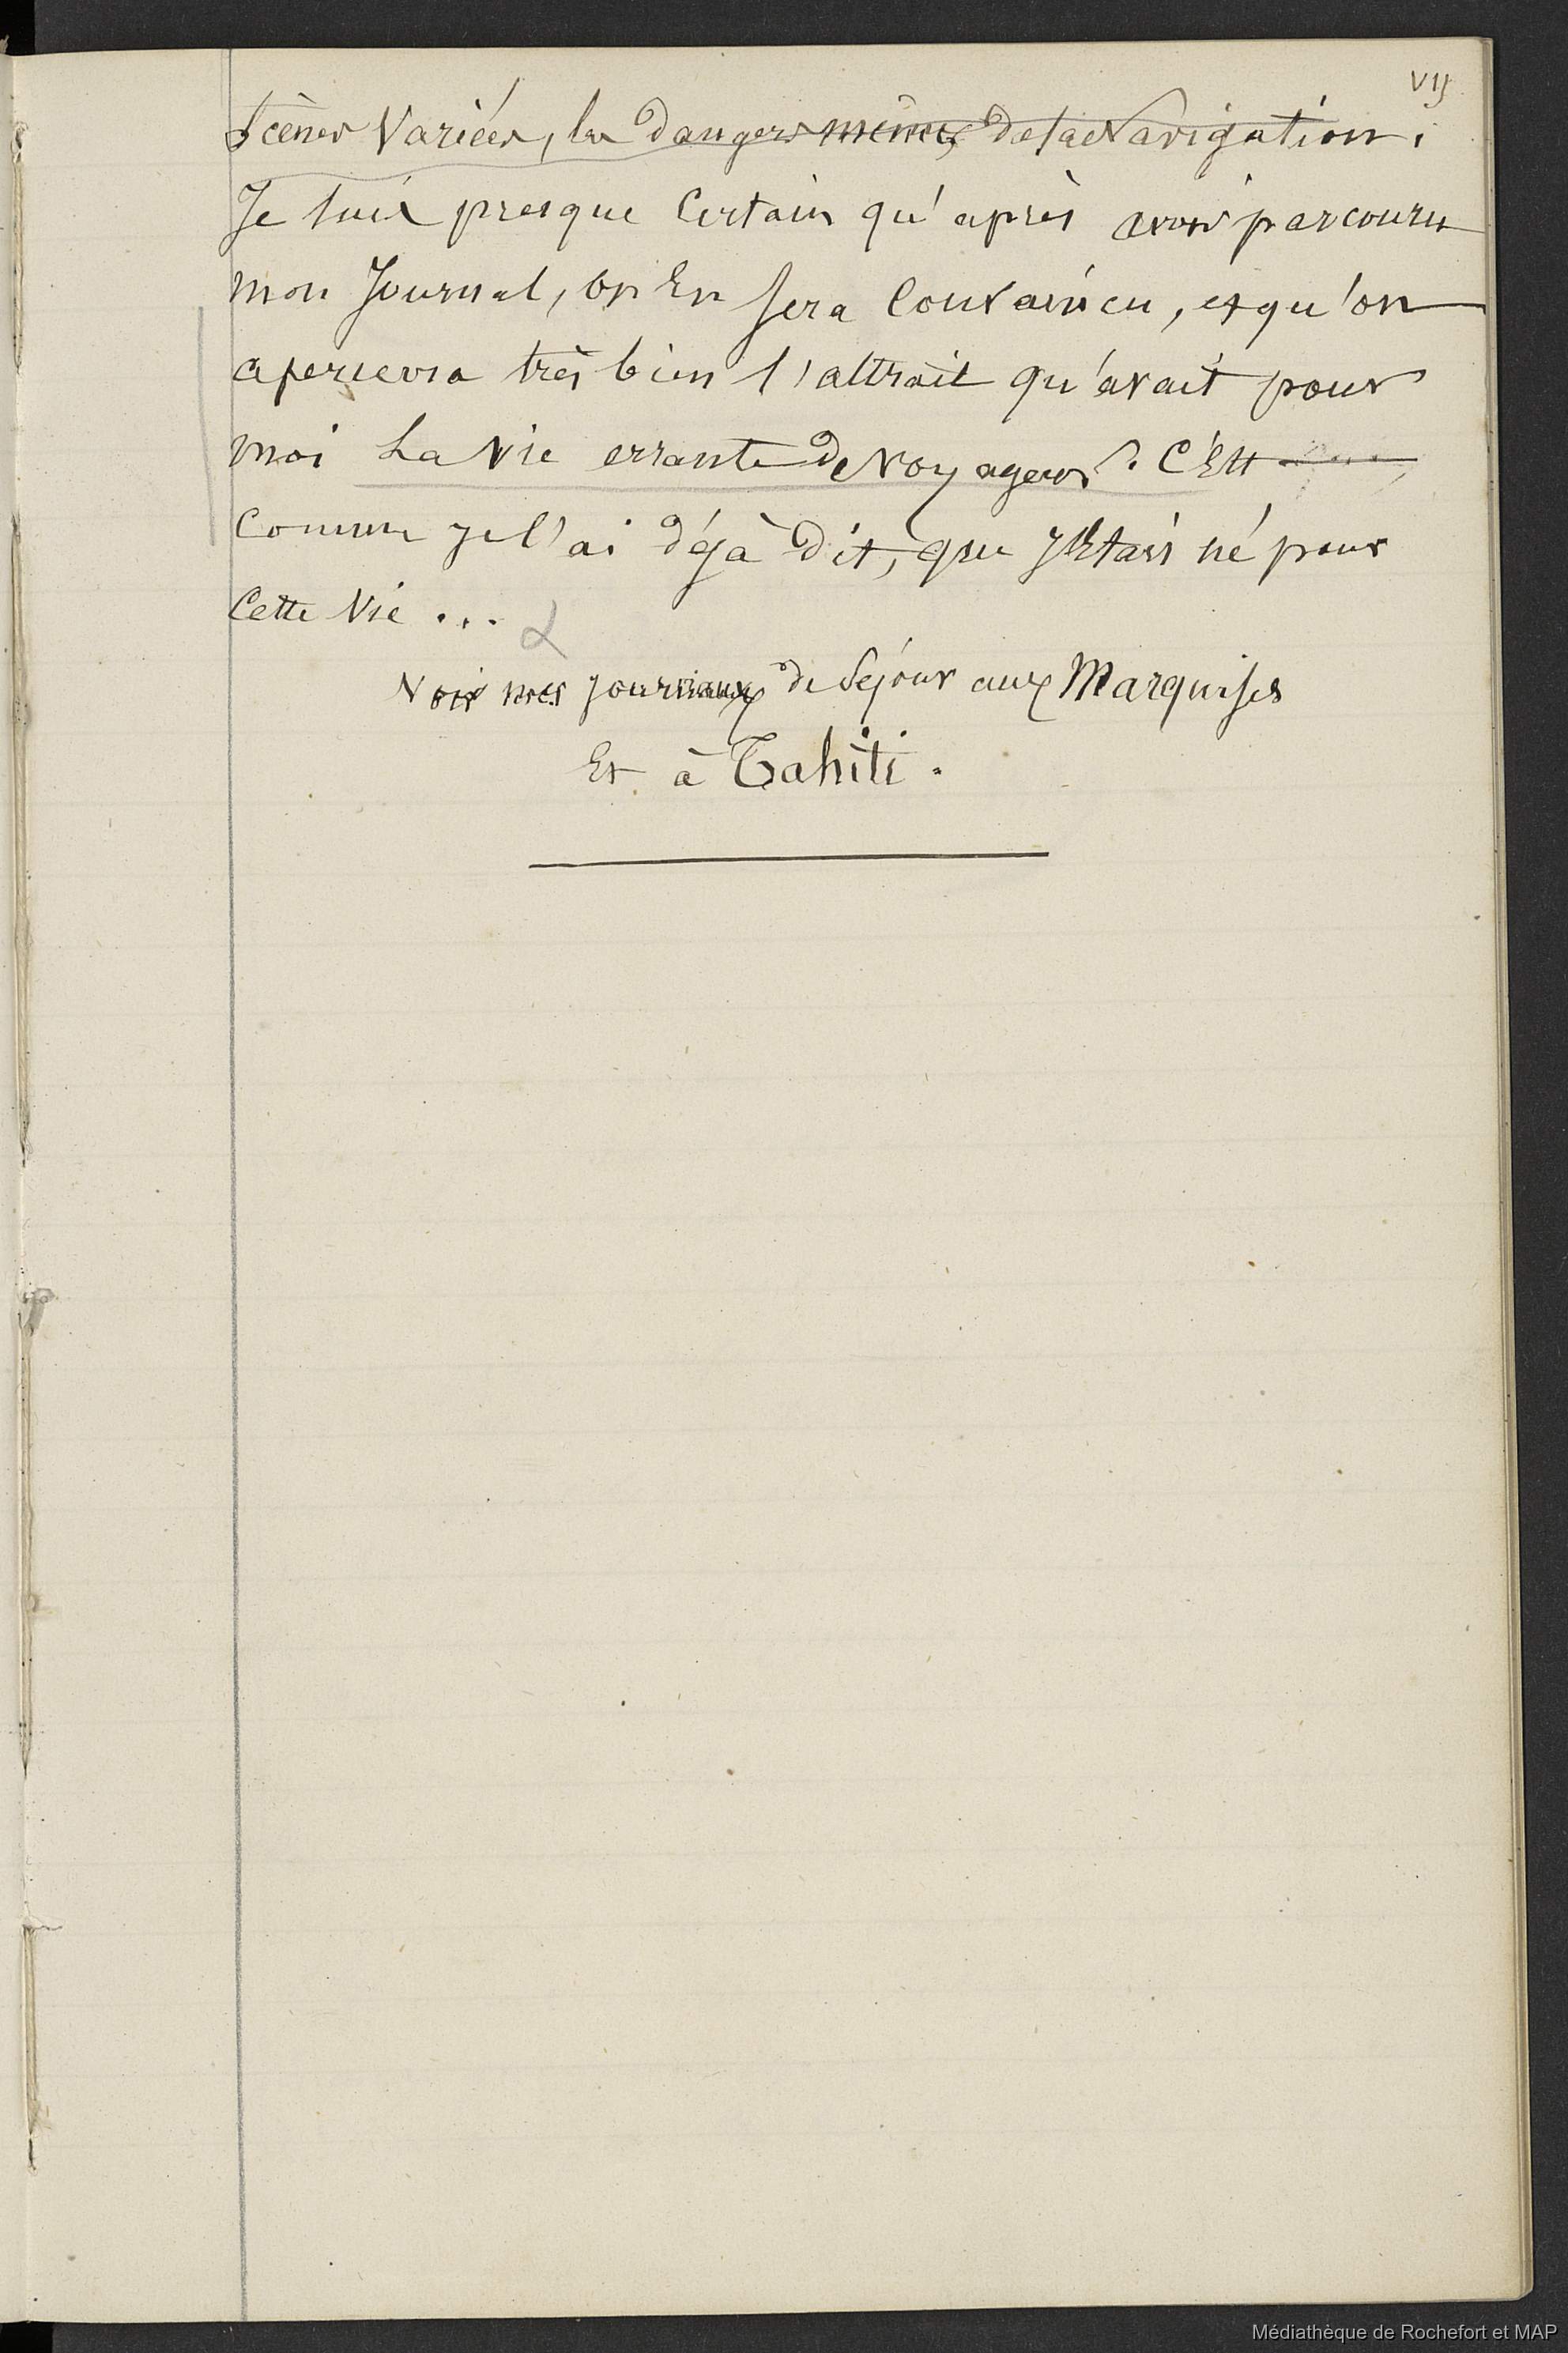 VIJ
Scènes Variées, les dangers mêmes, de la Navigation.
Je suis presque Certain qu'après avoir parcouru
mon Journal, on En sera Convaincu, et qu'on
apercevra très bien l'attrait qu'avait pour
moi La Vie errante de Voyageur. C'Est
Comme je l'ai déjà dit, que j'Etais né pour
Cette Vie ...
Voir mes journaux de Séjour aux Marquises
Et à Tahiti.
Médiathèque de Rochefort et MAP